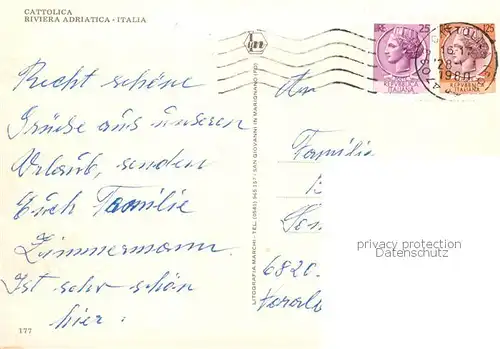 CATTOLICA
RIVIERA ADRIATICA - ITALIA
Recht schöne
Grüße aus unseren
Urlaub, senden
Euch Familie
Zimmermann.
Ist sehr schön
hier.
177
LITOGRAFIA MARCHI - TEL. (0541) 965 157 - SAN GIOVANNI IN MARIGNANO (FO)
LIRE 25
125
ITALIANA
ITALIANA
CATTOLICA
16-17
28
1980
An
Familie
6820
privacy protection
Datenschutz